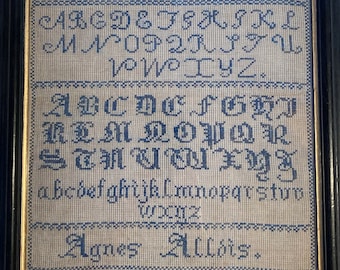 ABCDEFGHIJKL
MNOPQRSTU
VWXYZ.
ABCDEFGHI
KLMNOPQR
STUVWXYZ
abcdefghijklmnopqrstuv
wxyz
Agnes Alldis.